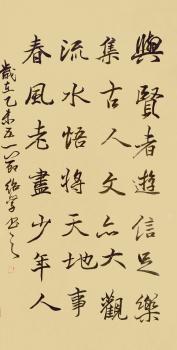 與賢者遊信足樂
集古人文亦大觀
流水悟將天地事
春風老盡少年人
歲在乙未五一節紹學書之